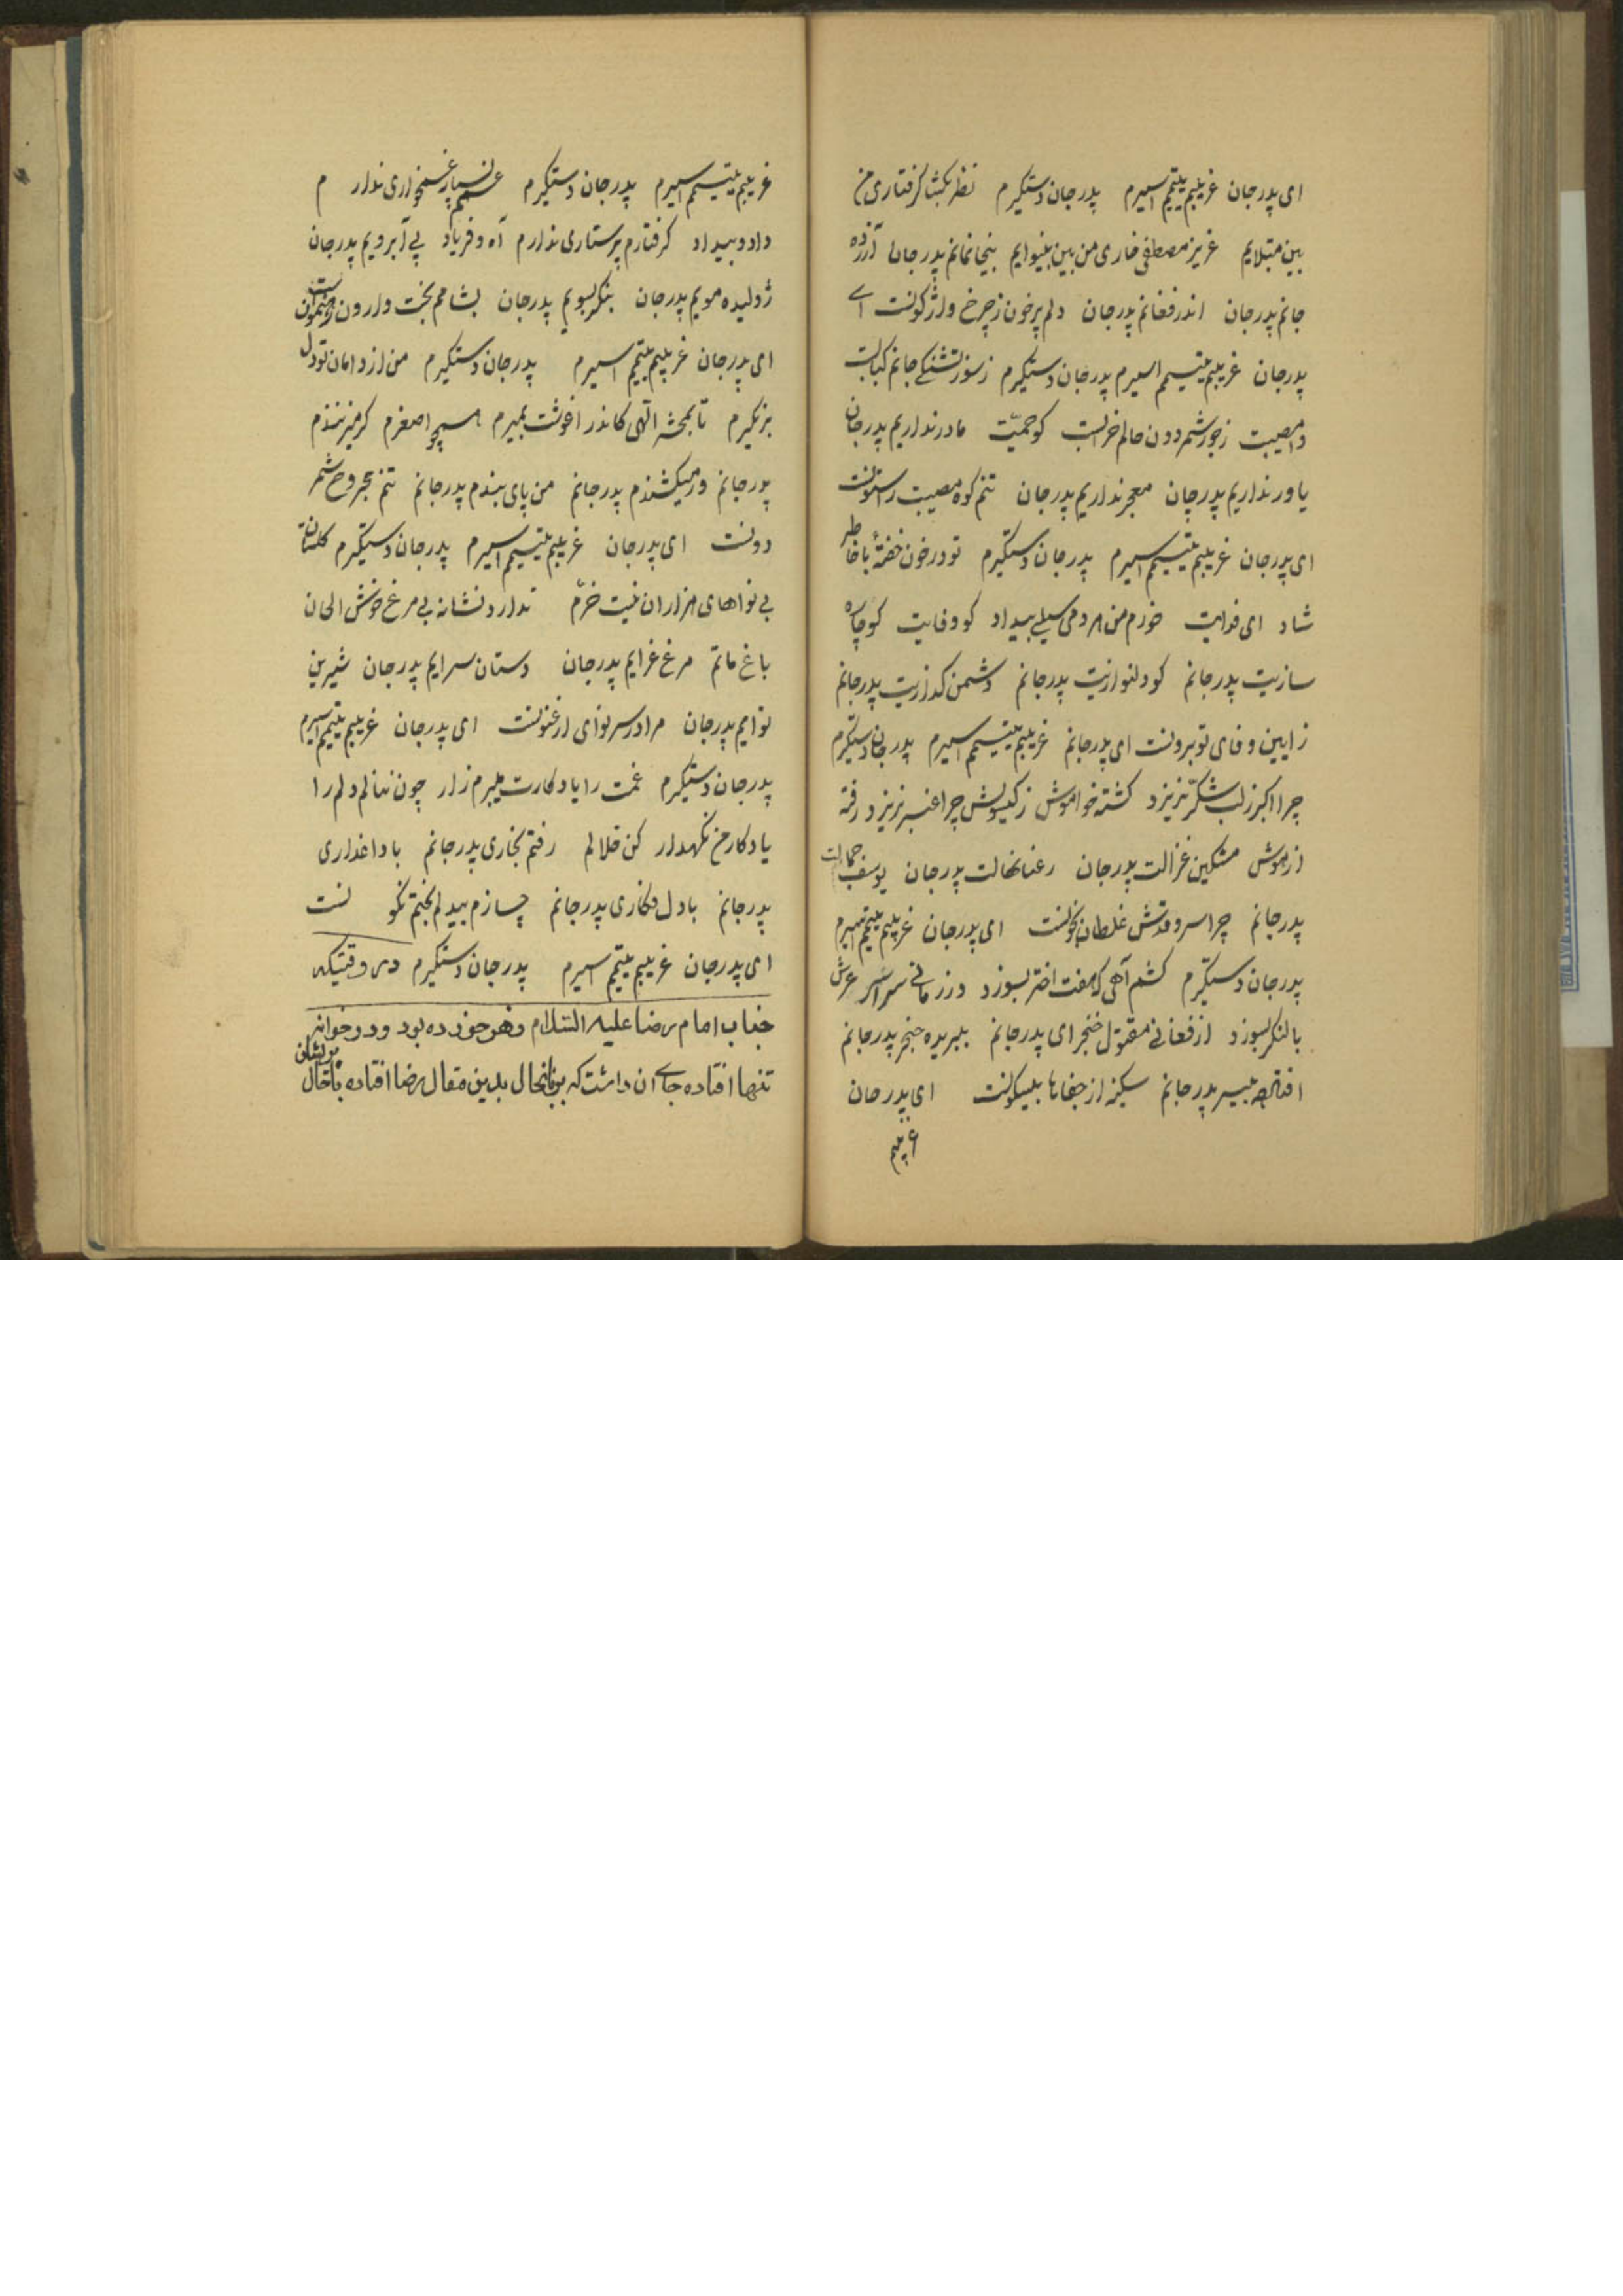 ای پدرجان غریبم یتیمم اسیرم پدرجان دستگیرم نظر بگشا گرفتاری من
ببین مبتلایم عزیز مصطفی خاری من ببین بینوایم بیخانمانم پدرجان آزرده
جانم پدرجان اندر فغانم پدرجان دلم پرخون ز چرخ واژگونست ای
پدرجان غریبم یتیمم اسیرم پدرجان دستگیرم ز سوز تشنگی جانم کبابست
مصیبت ز جور شمر دون حالم خرابست کو حمیّت مادر نداریم پدرجان
یاور نداریم پدرجان معجر نداریم پدرجان تنم کوه مصیبت را ستونست
ای پدرجان غریبم یتیمم اسیرم پدرجان دستگیرم تو در خون خفتهٔ با خاطر
شاد ای فدایت خورم من هر دمی سیلی بیداد کو وفایت کو چاره
سازیت پدرجانم کو دلنوازیت پدرجانم دشمن گدازیت پدرجانم
ز آیین وفای تو برونست ای پدرجانم غریبم یتیمم اسیرم پدرجان دستگیرم
چرا اکبر ز لب شکّر نریزد گشته خواموش ز گیسویش چرا عنبر نریزد رفته
از هوش مشکین غزالت پدرجان رعنا نهالت پدرجان یوسف جمالت
پدرجانم چرا سرو قدش غلطان بخونست ای پدرجان غریبم یتیمم اسیرم
پدرجان دستگیرم کشم آهی که هفت اختر بسوزد در زمانی سراسر عرش
با لنگر بسوزد از فغانی مقتول خنجر ای پدرجانم ببریده حنجر پدرجانم
افتاده بیسر پدرجانم سکینه از جفاها بیسکونست ای پدرجان
غریبم
غریبم یتیمم اسیرم پدرجان دستگیرم غمم بسیار غمخواری ندارم
داد و بیداد گرفتارم پرستاری ندارم آه و فریاد بی آبرویم پدرجان
ژولیده مویم پدرجان بنگر بسویم پدرجان بشامم بخت وارون رهنمونست
ای پدرجان غریبم یتیمم اسیرم پدرجان دستگیرم من از دامان تو دل
برنگیرم تا بمحشر الهی کاندر اغوشت بمیرم همچو اصغرم گر میزنندم
پدرجانم ور میکشندم پدرجانم من پای بندم پدرجانم تنم مجروح شمر
دونست ای پدرجان غریبم یتیمم اسیرم پدرجان دستگیرم گلستانت
بی نواهای هزاران نیست خرّم ندارد نشانه بی مرغ خوش الحان
باغ ماتم مرغ عزایم پدرجان دستان سرایم پدرجان شیرین
نوایم پدرجان مرا در سر نوای ارغنونست ای پدرجان غریبم یتیمم اسیرم
پدرجان دستگیرم غمت را یادگارت میبرم زار چون ننالم دلم را
یادگار من نگهدار کن حلالم رفتم بخاری پدرجانم با داغداری
پدرجانم با دل فکاری پدرجانم چسازم بیدلم بختم نگونست
ای پدرجان غریبم یتیمم اسیرم پدرجان دستگیرم در وقتیکه
جناب امام رضا علیه السّلام زهر خورده بود و در خوانه
تنها افتاده جای ان داشت که باینحال بدین مقال رضا افتاده با حال پریشان